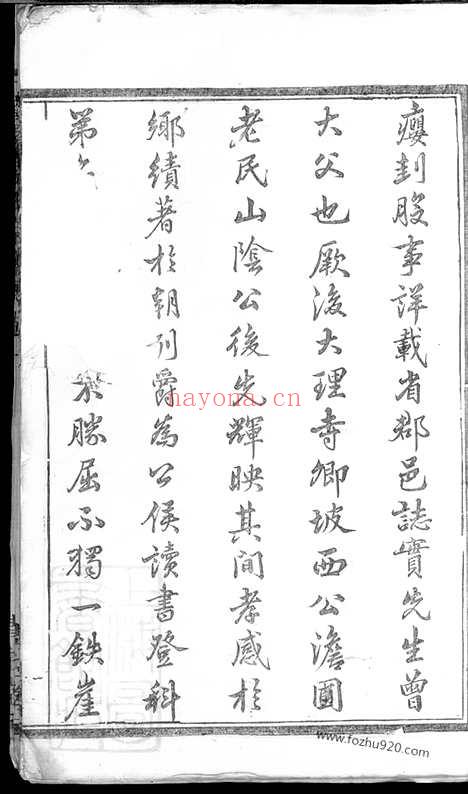 癭刲股事詳載省郡邑誌實先生曾
大父也厥後大理寺卿坡西公澹園
老民山陰公後先輝映其間孝感於
鄉績著於朝列爵為公侯讀書登科
第 不勝屈不獨一鉄崖
hayona.cn
www.fozhu920.com